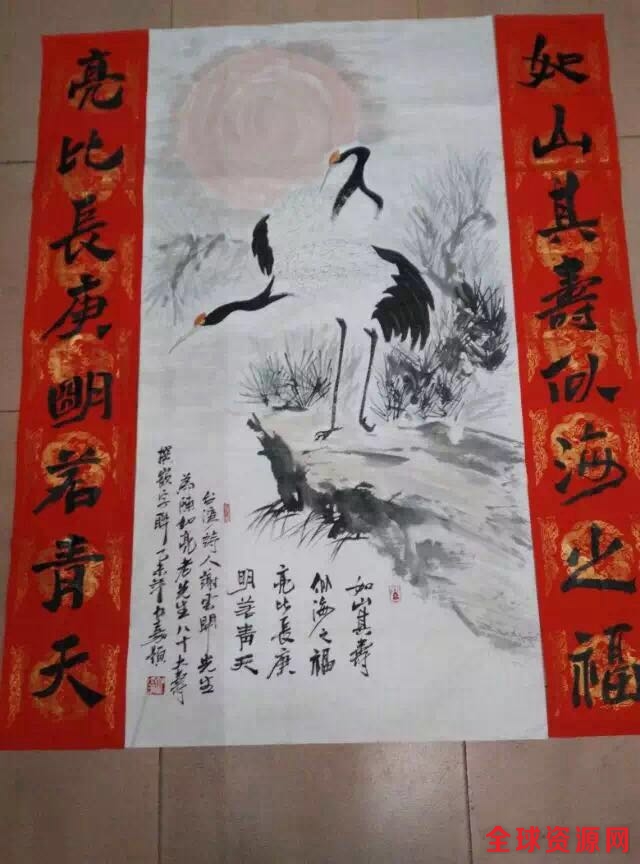 如山其壽似海之福
如山其壽
似海之福
亮比長庚
明若青天
台灣詩人謝明先生
為陳如亮老先生八十大壽
撰嵌字聯乙未
亮比長庚明若青天
全球资源网